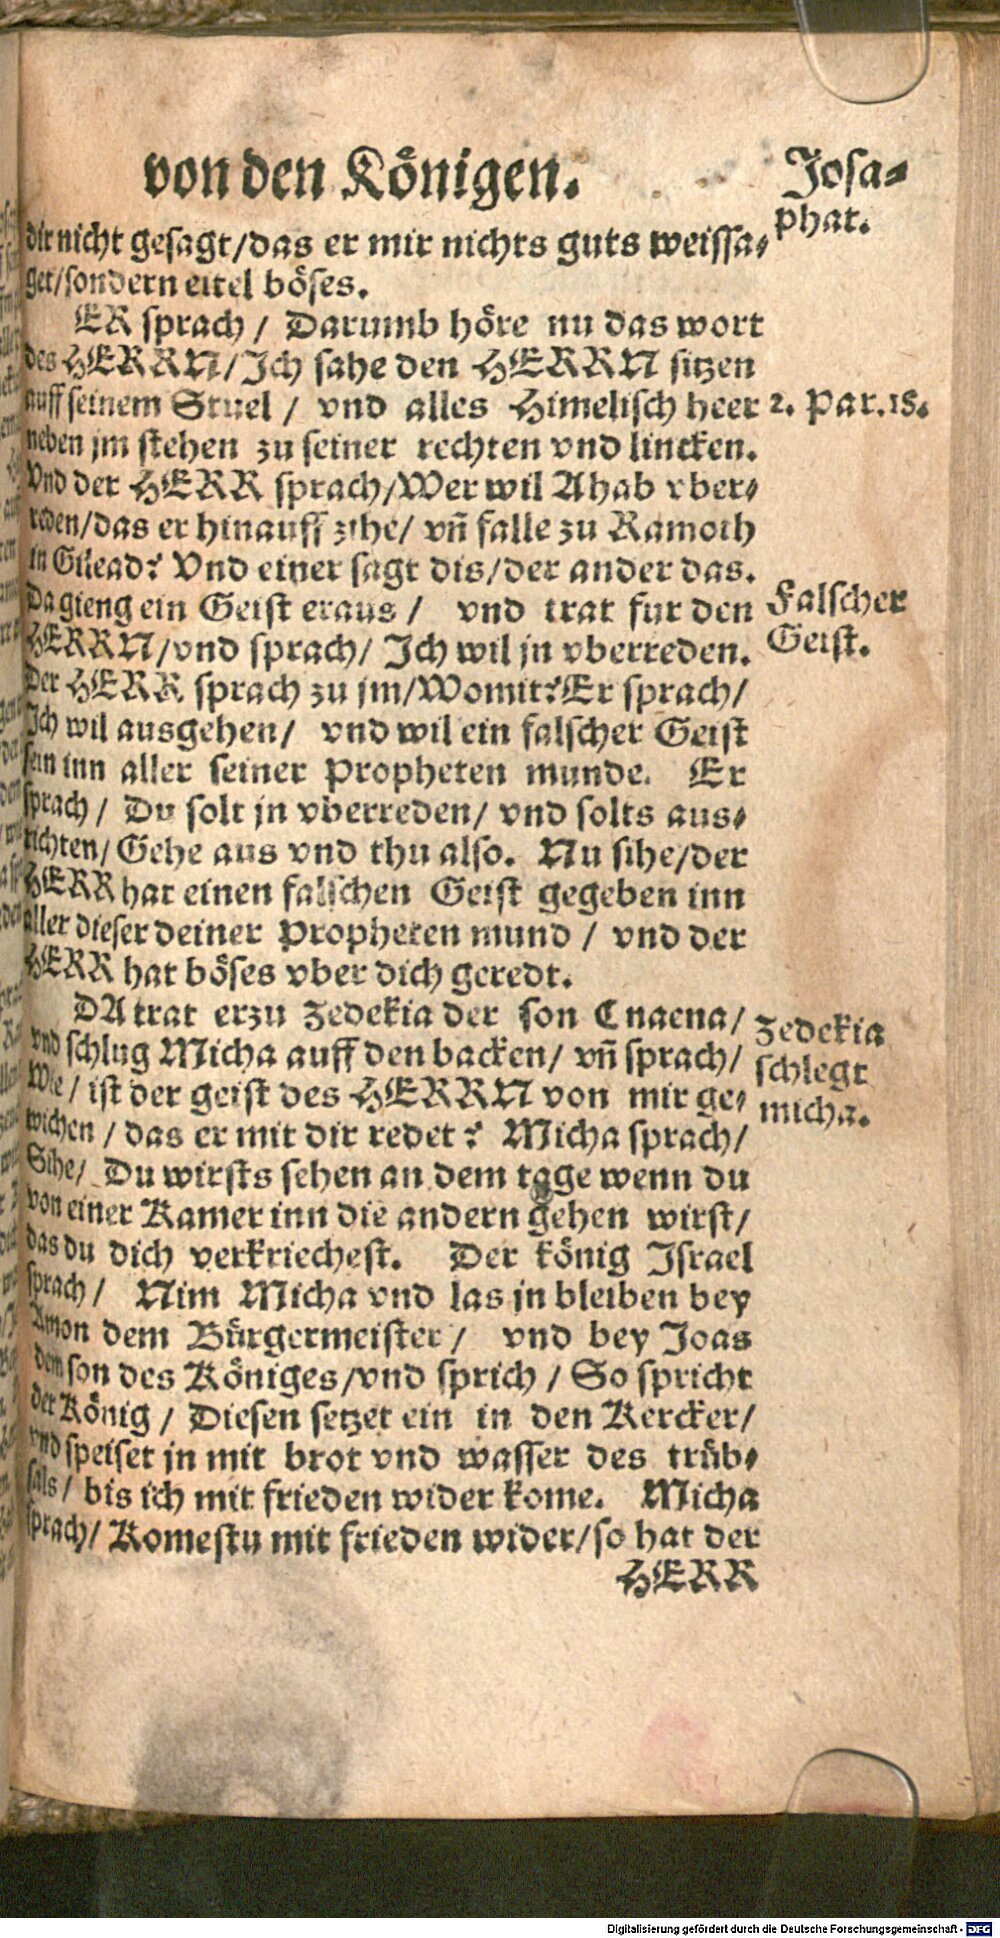 von den Königen.
Josa⸗
phat.
dir nicht gesagt/das er mir nichts guts weissa⸗
get/sondern eitel böses.
ER sprach / Darumb höre nu das wort
des HERRN/Ich sahe den HERRN sitzen
auff seinem Stuel / vnd alles Himelisch heer
2. Par. 18.
neben jm stehen zu seiner rechten vnd lincken.
Vnd der HERR sprach/Wer wil Ahab vber⸗
reden/das er hinauff zihe/ vn̄ falle zu Ramoth
in Gilead? Vnd einer sagt dis/der ander das.
Da gieng ein Geist eraus / vnd trat fur den
Falscher
Geist.
HERRN/vnd sprach/ Ich wil jn vberreden.
Der HERR sprach zu jm/Womit? Er sprach/
Ich wil ausgehen/ vnd wil ein falscher Geist
sein inn aller seiner Propheten munde. Er
sprach / Du solt jn vberreden/ vnd solts aus⸗
richten/ Gehe aus vnd thu also. Nu sihe/der
HERR hat einen falschen Geist gegeben inn
aller dieser deiner Propheten mund / vnd der
HERR hat böses vber dich geredt.
DA trat erzu Zedekia der son Cnaena/
Zedekia
schlegt
micha.
vnd schlug Micha auff den backen/ vn̄ sprach/
Wie / ist der geist des HERRN von mir ge⸗
wichen / das er mit dir redet? Micha sprach/
Sihe/ Du wirsts sehen an dem tage wenn du
von einer Kamer inn die andern gehen wirst/
das du dich verkriechest. Der könig Israel
sprach / Nim Micha vnd las jn bleiben bey
Amon dem Bürgermeister / vnd bey Joas
dem son des Königes/vnd sprich / So spricht
der König / Diesen setzet ein in den Kercker/
vnd speiset jn mit brot vnd wasser des trüb⸗
sals / bis ich mit frieden wider kome. Micha
sprach/ Komestu mit frieden wider/so hat der
HERR
Digitalisierung gefördert durch die Deutsche Forschungsgemeinschaft - DFG